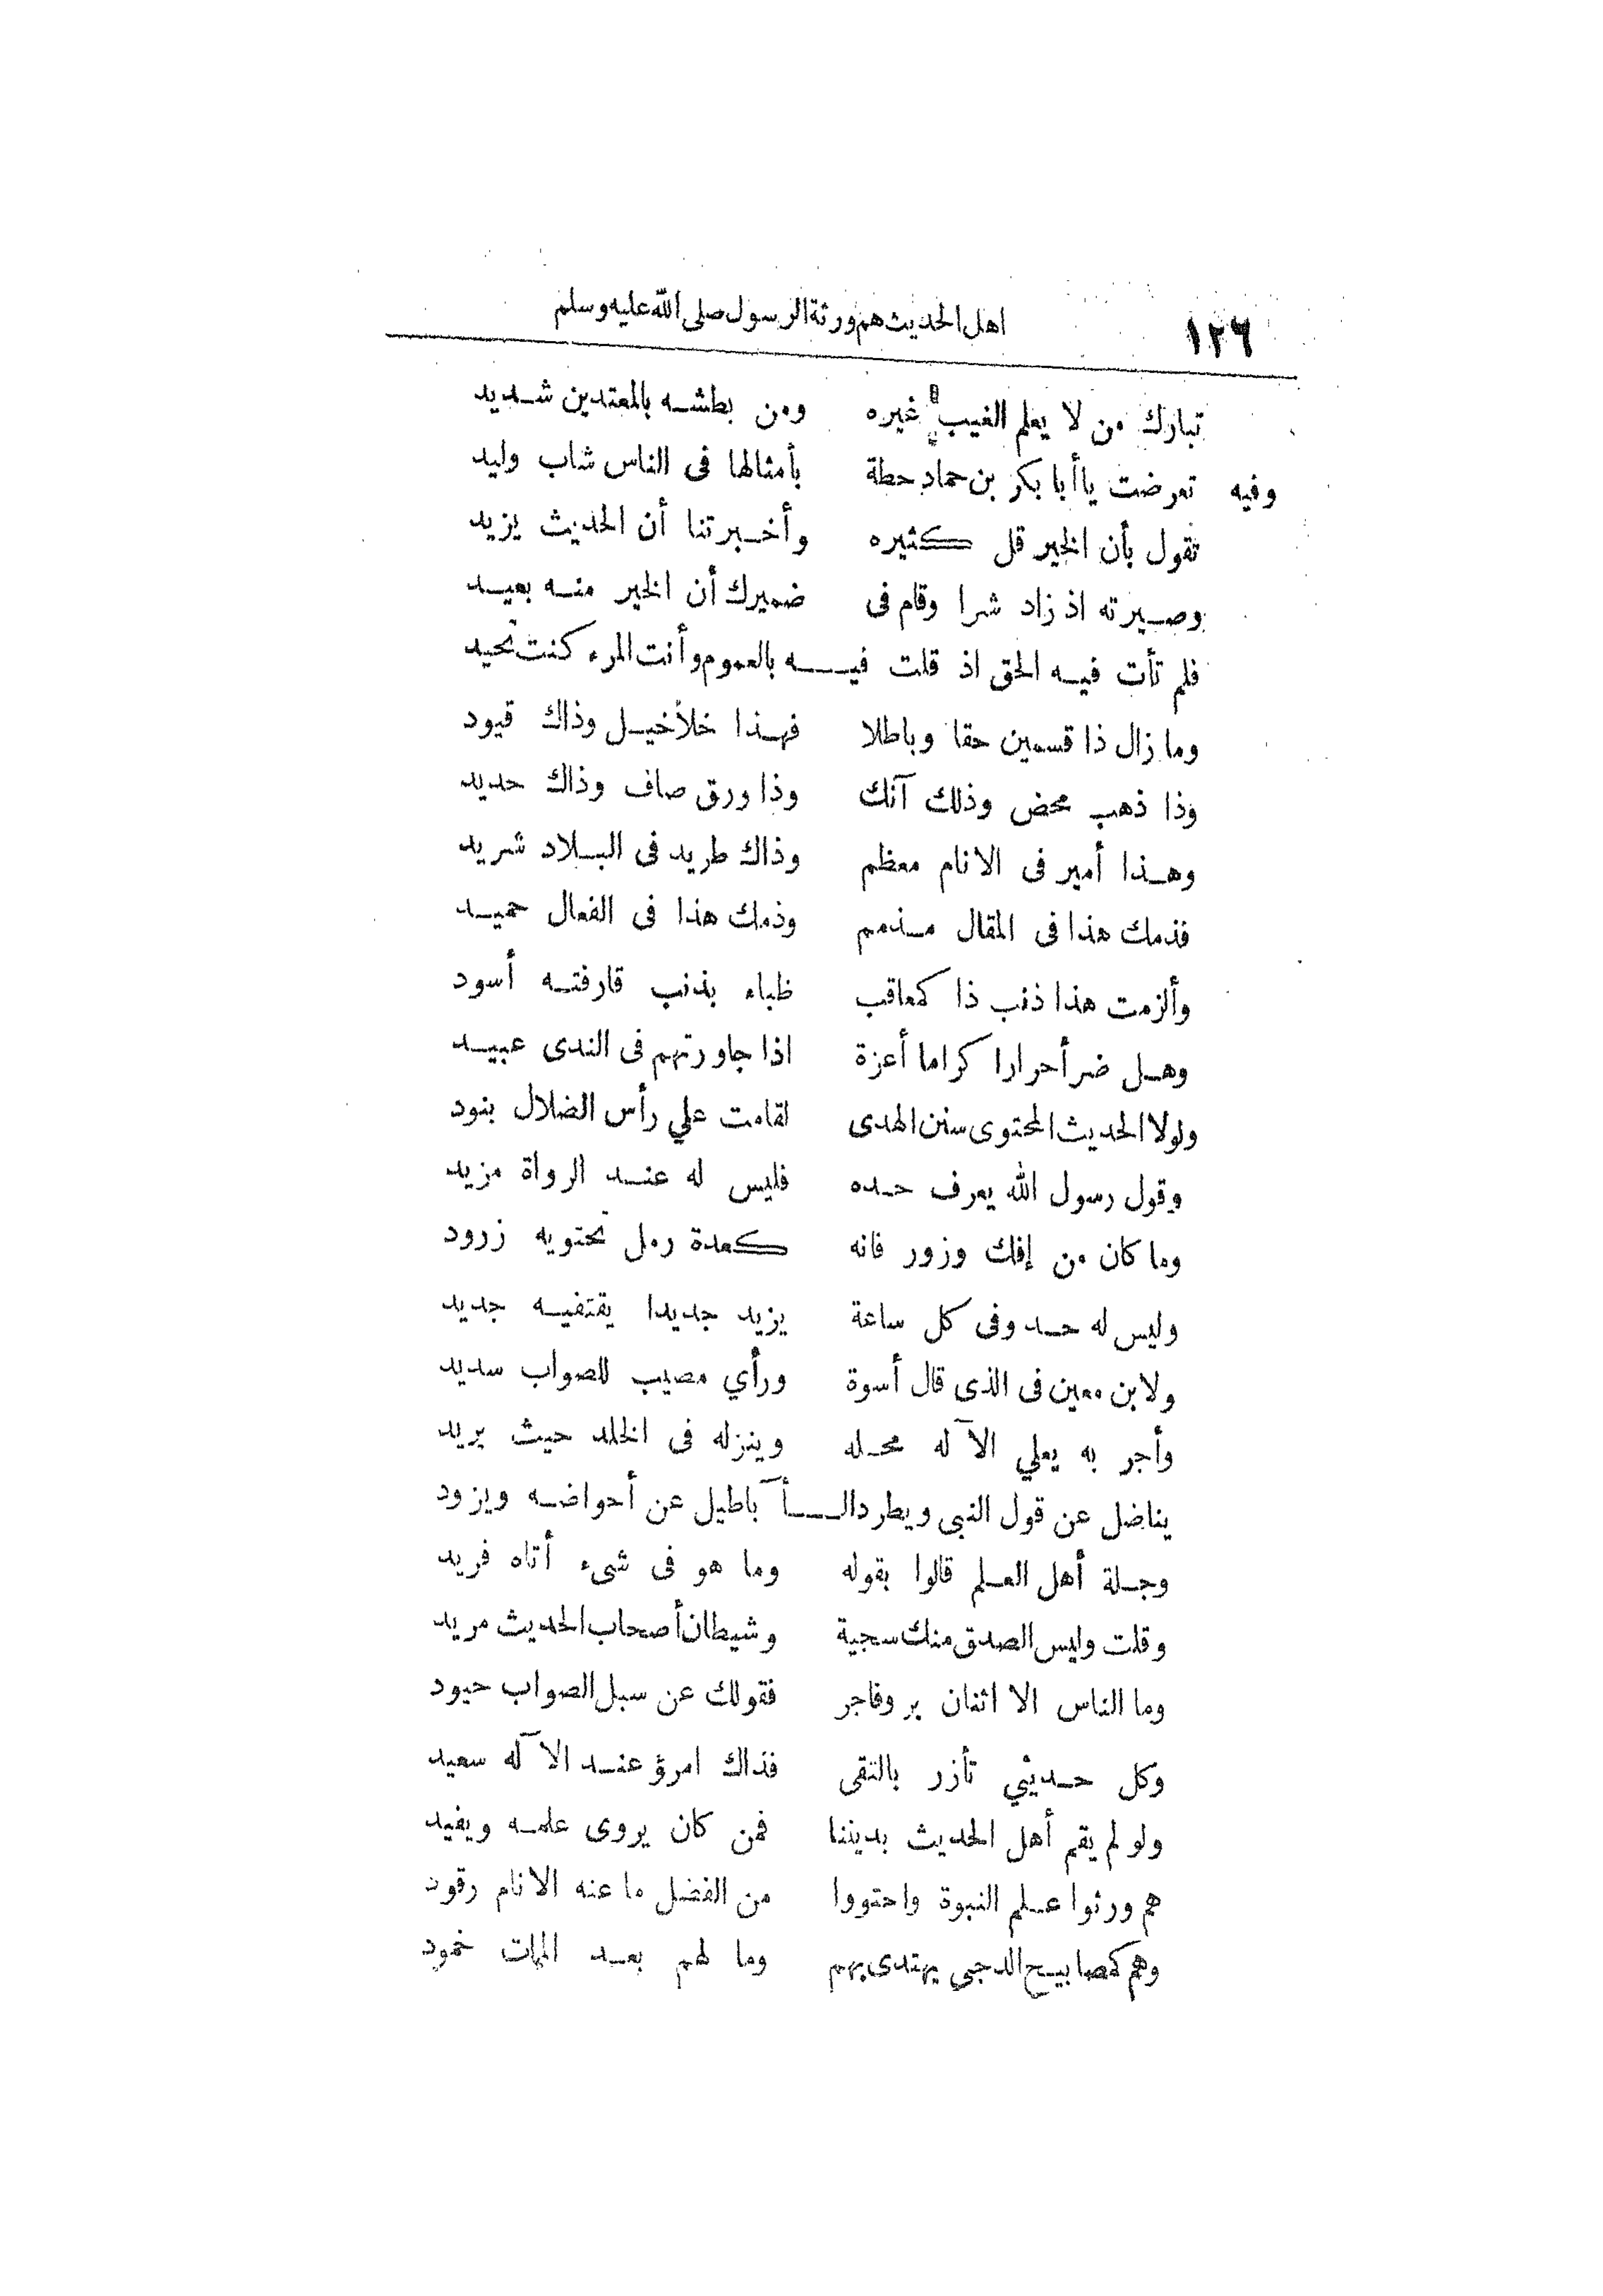 ١٢٦ اهل الحديث هم ورثة الرسول صلى الله عليه وسلم
تبارك من لا يعلم الغيب غيره ومن بطشه بالمعتدين شديد
وفيه تعرضت ياأبا بكر بن حماد حطة بأمثالها فى الناس شاب وليد
تقول بأن الخير قل كثيره وأخبرتنا أن الحديث يزيد
وصيرته اذ زاد شرا وقام فى ضميرك أن الخير منه بعيد
فلم تأت فيه الحق اذ قلت فيه بالعموم وأنت المرء كنت تحيد
وما زال ذا قسمين حقا وباطلا فهذا خلاخيل وذاك قيود
وذا ذهب محض وذلك آنك وذا ورق صاف وذاك حديد
وهذا أمير فى الانام معظم وذاك طريد فى البلاد شريد
فذمك هذا فى المقال مذمم وذمك هذا فى الفعال حميد
وألزمت هذا ذنب ذا كمعاقب ظباء بذنب قارفته أسود
وهل ضر أحرارا كراما أعزة اذا جاورتهم فى الندى عبيد
ولولا الحديث المحتوى سنن الهدى لقامت علي رأس الضلال بنود
وقول رسول الله يعرف حده فليس له عند الرواة مزيد
وما كان من إفك وزور فانه كعدة رمل تحتويه زرود
وليس له حد وفى كل ساعة يزيد جديدا يقتفيه جديد
ولابن معين فى الذى قال أسوة ورأي مصيب للصواب سديد
وأجر به يعلي الآله محله وينزله فى الخلد حيث يريد
يناضل عن قول النبى ويطرد الأباطيل عن أحواضه ويزود
وجلة أهل العلم قالوا بقوله وما هو فى شىء أتاه فريد
وقلت وليس الصدق منك سجية وشيطان أصحاب الحديث مريد
وما الناس الا اثنان بر وفاجر فقولك عن سبل الصواب حيود
وكل حديثي تأزر بالتقى فذاك امرؤ عند الآله سعيد
ولو لم يقم أهل الحديث بديننا فمن كان يروى علمه ويفيد
هم ورثوا علم النبوة واحتووا من الفضل ما عنه الانام رقود
وهم كمصابيح الدجي يهتدى بهم وما لهم بعد الممات خمود